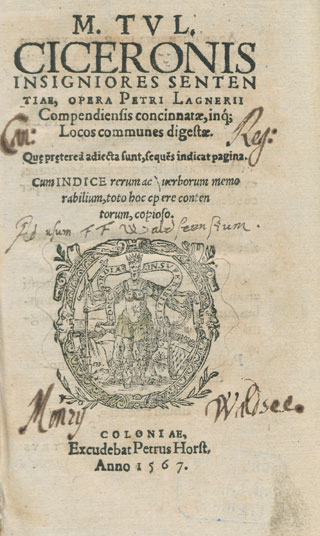 M. TVL.
CICERONIS
INSIGNIORES SENTEN
TIAE, OPERA PETRI LAGNERII
Compendiensis concinnatæ, inq;
Locos communes digestæ.
Can: Reg:
Que preterea adiecta sunt, sequẽs indicat pagina.
Cum INDICE rerum ac uerborum memo
rabilium, toto hoc opere conten
torum, copioso.
Ad usum FF Waldseensium.
Monrÿ Waldsee.
COLONIAE,
Excudebat Petrus Horst,
Anno 1567.